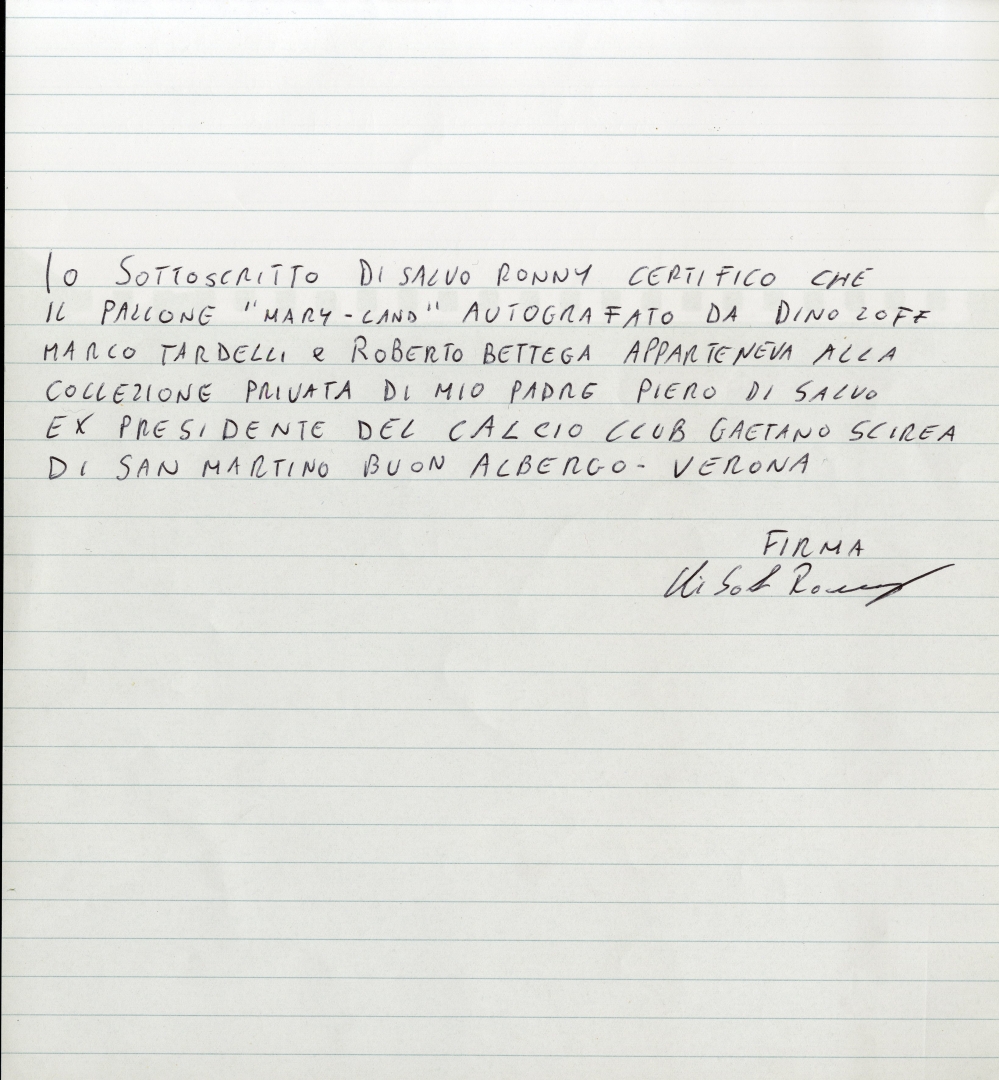 Io SOTTOSCRITTO DI SALVO RONNY CERTIFICO CHE
IL PALLONE "MARY-LAND" AUTOGRAFATO DA DINO ZOFF
MARCO TARDELLI e ROBERTO BETTEGA APPARTENEVA ALLA
COLLEZIONE PRIVATA DI MIO PADRE PIERO DI SALVO
EX PRESIDENTE DEL CALCIO CLUB GAETANO SCIREA
DI SAN MARTINO BUON ALBERGO - VERONA
FIRMA
Di Salvo Ronny